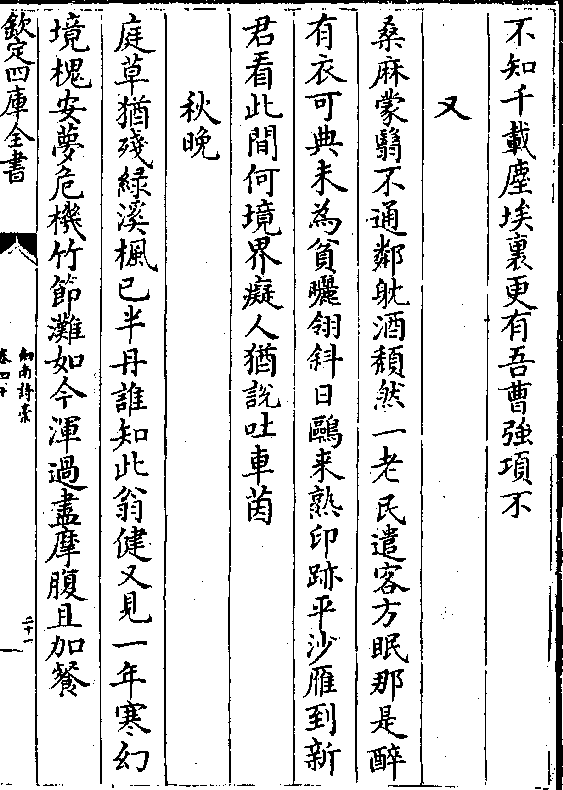 不知千載塵埃裏更有吾曹強項不
又
桑麻蒙翳不通鄰躭酒頽然一老民遣客方眠那是醉
有衣可典未為貧曬翎斜日鷗来熟印跡平沙雁到新
君看此間何境界癡人猶說吐車茵
秋晚
庭草猶殘緑溪楓已半丹誰知此翁健又見一年寒幻
境槐安夢危機竹節灘如今渾過盡摩腹且加餐
欽定四庫全書
劒南詩稾
卷四十
二十一